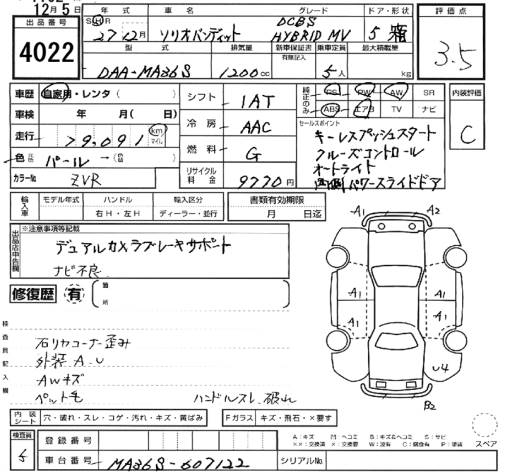 12月5
出品番号
4022
年式 車名 グレード ドア・形状
27 12月 ソリオバンディット DCBS HYBRID MV 5 箱
型式 排気量 新車保証書 乗車定員 最大積載量
有無記入
DAA-MA36S 1200cc 5人 kg
評価点
3.5
車歴 自家用・レンタ( )
車検 年 月( 日)
走行 79,091 km マイル
色 パール→(色)
カラーNo ZVR
シフト 1AT
冷房 AAC
燃料 G
リサイクル料金 9770円
純正のみ PS PW AW SR
ABS エアB TV ナビ
セールスポイント
キーレスプッシュスタート
クルーズコントロール
オートライト
両側パワースライドドア
内装評価
C
輸入車 モデル年式 ハンドル 輸入区分
右H・左H ディーラー・並行
書類有効期限
月 日迄
出品店申告欄
※注意事項等記載
デュアルカメラブレーキサポート
ナビ不良
修復歴 有 箇所
検査員記入欄
石リヤコーナー歪み
外装A.U
AWキズ
ペット毛
ハンドルスレ.破れ
A1 A2
A1 A1
A1 A1
U4
B2
内装シート 穴・破れ・スレ・コゲ・汚れ・キズ・黄ばみ
Fガラス キズ・飛石・×要す
A:キズ M:ヘコミ B:キズ&ヘコミ S:サビ
××:交換済 ×:要交換 W:波有 C:腐食有 P:塗装
スペア
検査員
登録番号
車台番号 MA36S-607122
シリアルNo